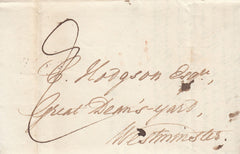 2
C. Hodgson Esqre,
Great Deans-yard,
Westminster.